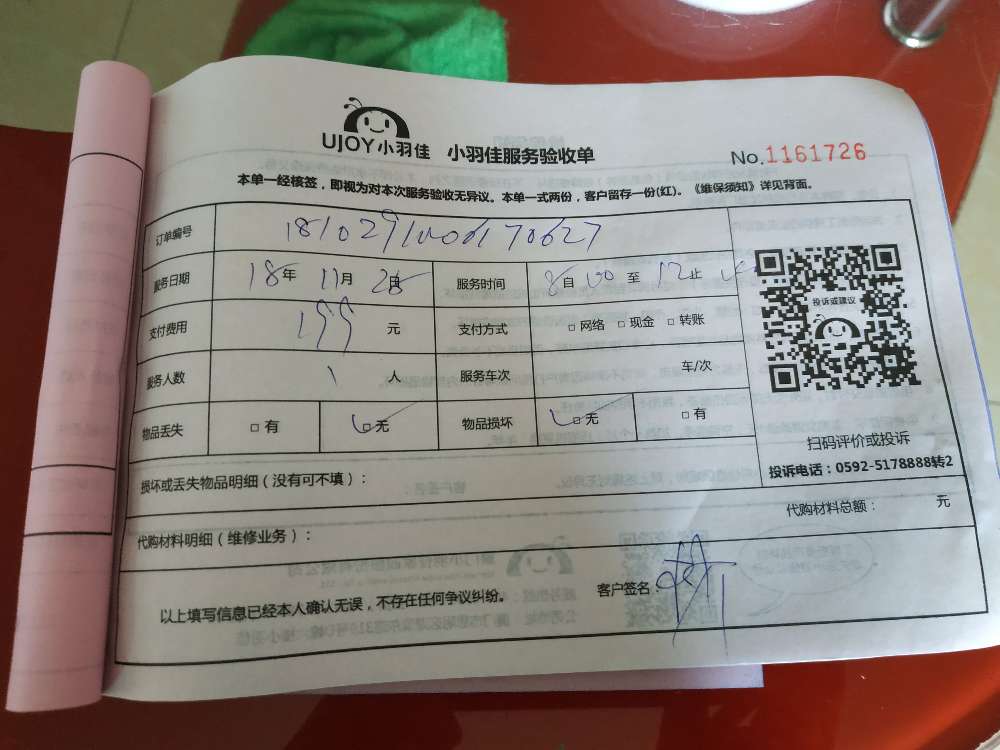 UJOY小羽佳 小羽佳服务验收单
No.1161726
本单一经核签，即视为对本次服务验收无异议。本单一式两份，客户留存一份(红)。《维保须知》详见背面。
订单编号
服务日期 18年 11月 28日 服务时间 8自00 至 12止
投诉或建议
支付费用 199 元 支付方式 □网络 □现金 □转账
服务人数 1 人 服务车次 车/次
物品丢失 □有 □无 物品损坏 □无 □有
扫码评价或投诉
投诉电话：0592-5178888转2
损坏或丢失物品明细（没有可不填）：
代购材料总额： 元
代购材料明细（维修业务）：
以上填写信息已经本人确认无误，不存在任何争议纠纷。 客户签名：